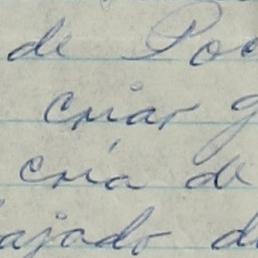 de Po
criar g
cría de
ajado d